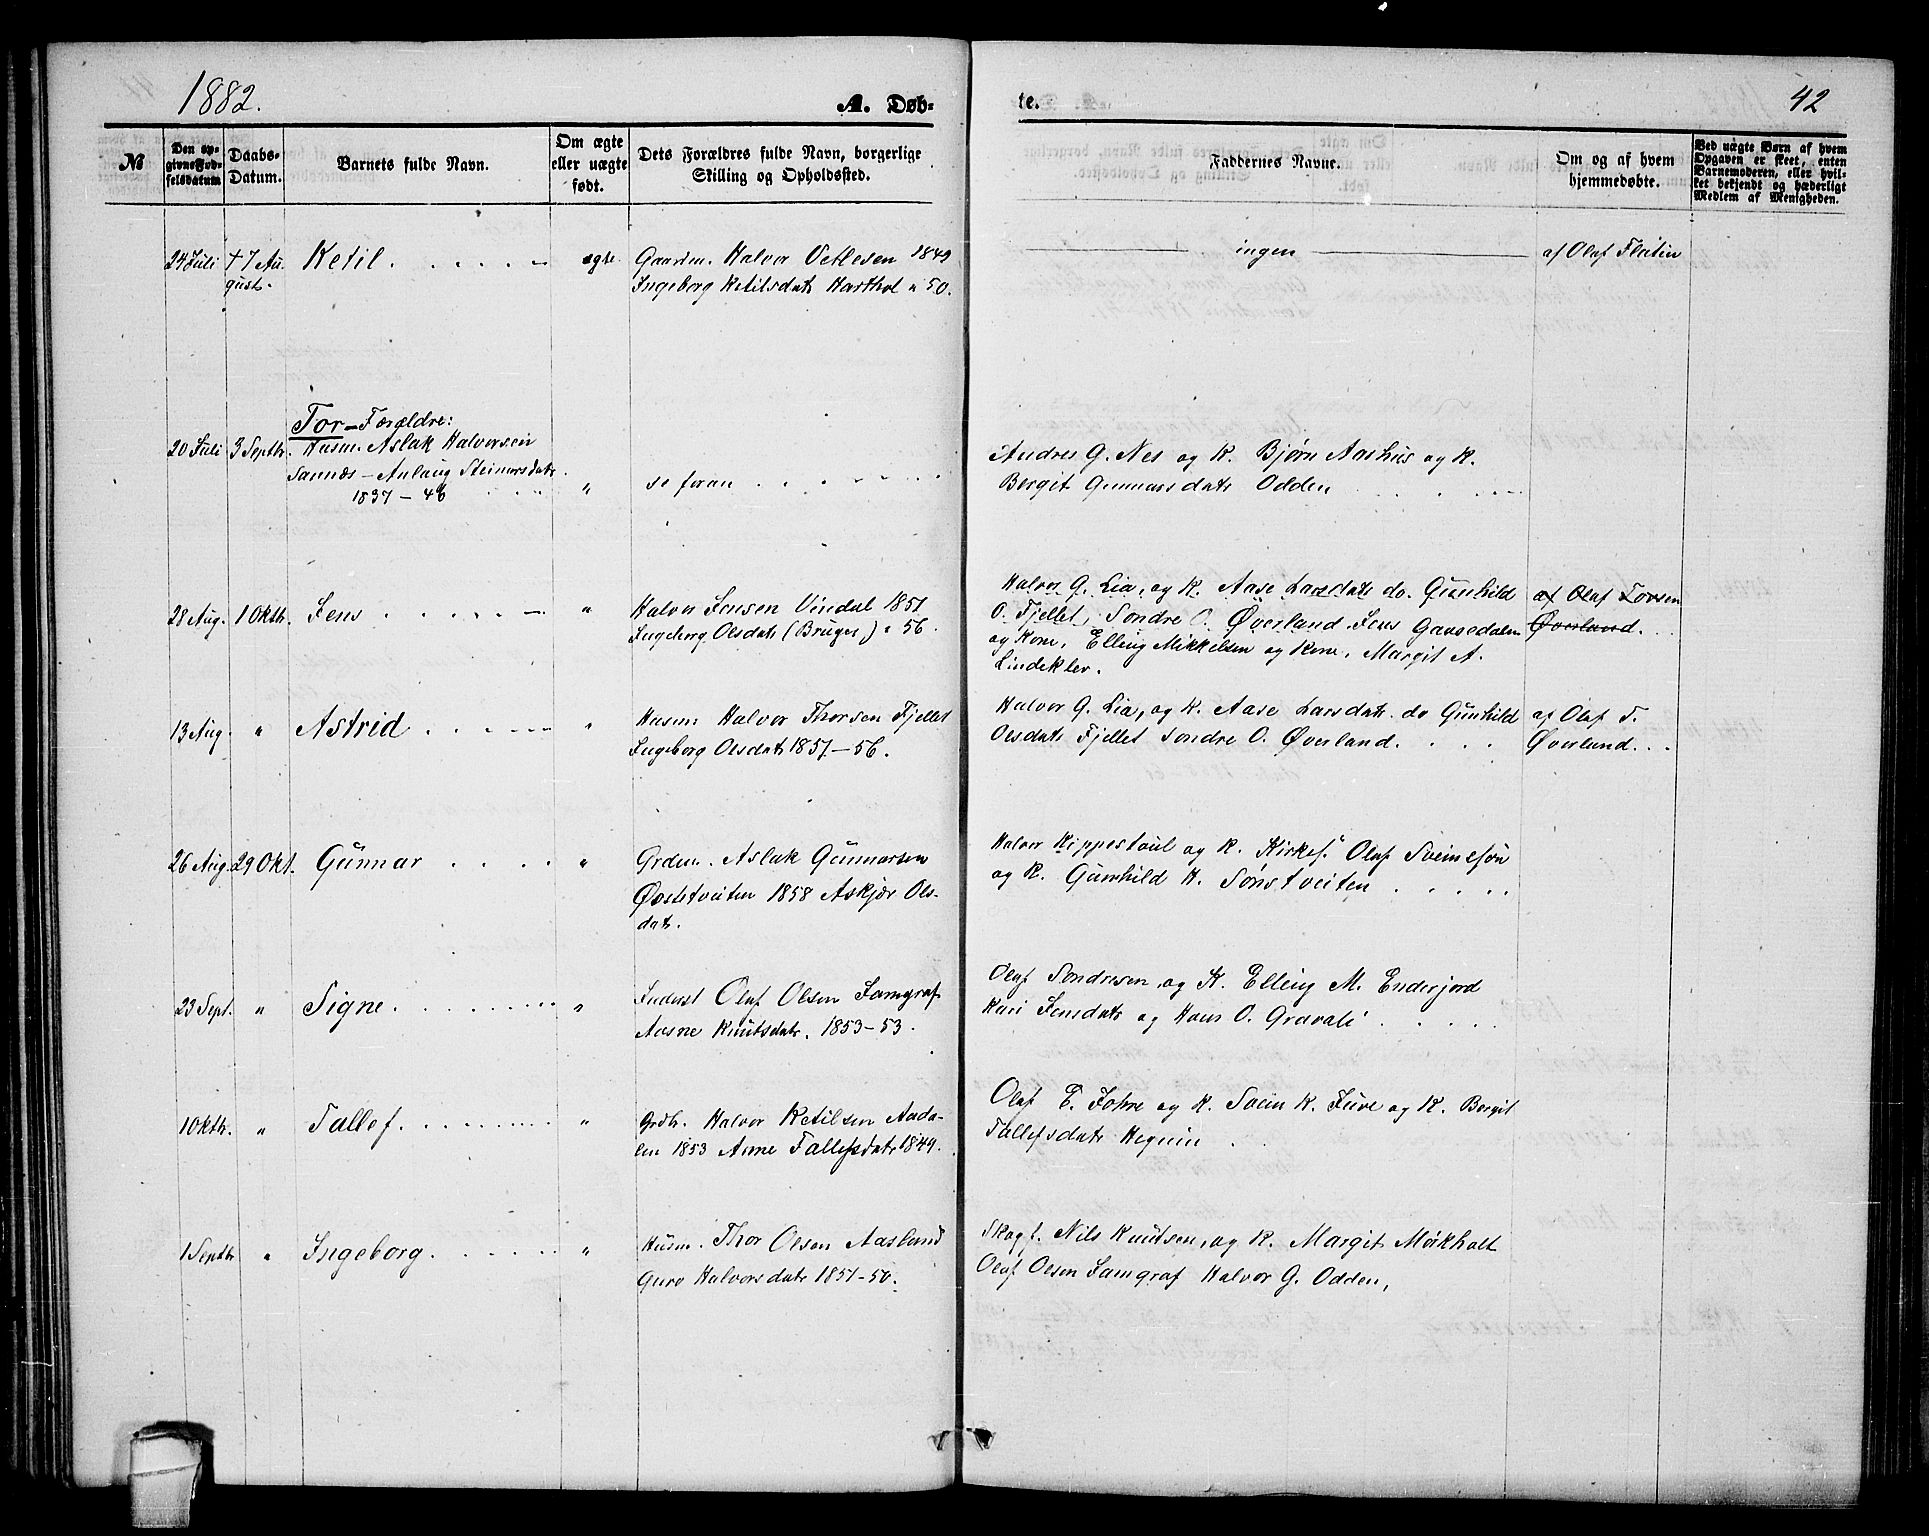 1882.
A. Døb-
te.
42
№
Den op-
givne Fød-
selsdatum
Daabs-
Datum.
Barnets fulde Navn.
Om ægte
eller uægte
født.
Dets Forældres fulde Navn, borgerlige
Stilling og Opholdssted.
Faddernes Navne.
Om og af hvem
hjemmedøbte.
Ved uægte Børn af hvem
Opgaven er skeet, enten
Barnemoderen, eller hvil-
ket bekjendt og hæderligt
Medlem af Menigheden.
24 Juli † 7 Au-
gust.
Ketil
ægte
Gaardm. Halvor Vetlesen 1849
Ingeborg Ketilsdatr Harthol " 50.
ingen
af Olaf Flatin
20 Juli 3 Septbr.
Tor - Forældre:
Husm. Aslak Halvorsen
Sannæs - Anlaug Steinarsdatr.
1837 - 46
"
se foran
Andres G. Nes og K. Bjørn Aashus og K.
Bergit Gunnarsdatr Odden
28 Aug. 1 Oktbr. Jens
"
Halvor Jensen Vindal 1851
Ingeborg Olsdatr (Bruger) " 56.
Halvor G. Lia, og K. Aase Larsdatr do. Gunhild
O. Fjellet, Sondre O. Øverland Jens Gaasedalen
og Kone, Elling Mikkelsen og Kone, Margit A.
Lindeklev.
af Olaf Torsen
Øverland.
13 Aug. " Astrid "
Husm: Halvor Thorsen Fjellet
Ingeborg Olsdatr 1851 - 56.
Halvor G. Lia, og K. Aase Larsdatr. do Gunhild
Olsdatr Fjellet Sondre O. Øverland.
af Olaf T.
Øverland.
26 Aug. 29 Okt. Gunnar "
Grdm. Aslak Gunnarsen
Øvstetveiten 1858 Askjær Ols-
datr.
Halvor Kippestaul og K. Kirkes. Olaf Sveinesøn
og K. Gunhild H. Sønstveiten
23 Sept. " Signe "
Inderst Olaf Olsen Jamgraf
Aasne Knutsdatr. 1853 - 53.
Olaf Sondresen og K. Elling M. Enderjord
Kari Jensdatr og Hans O. Gravali
1 Oktbr. " Tallef "
Grdbr. Halvor Ketilsen Aada-
len 1853 Anne Tallefsdatr 1849.
Olaf E. Johre og K. Svein K. Juve og K. Bergit
Tallefsdatr Hegnin
1 Septbr " Ingeborg "
Husm. Thor Olsen Aasland
Guro Halvorsdatr 1851 - 50.
Skogf. Nils Knutsen, og K. Margit Mørkholt
Olaf Olsen Jamgraf Halvor G. Odden,